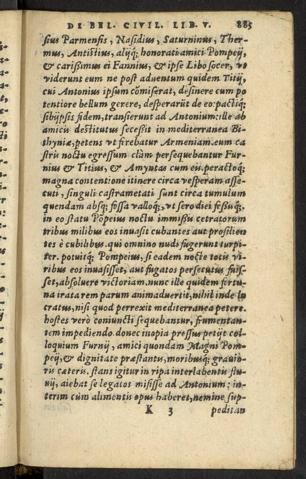 DE BEL. CIVIL. LIB. V. 885
sius Parmensis, Nasidius, Saturninus, Ther-
mus, Antistius, alijq́; honorati amici Pompeij,
& carißimus ei Fannius, & ipse Libo socer, vo
viderunt eum ne post aduentum quidem Titij,
cui Antonius ipsum cōmiserat, desinere cum po
tentiore bellum gerere, desperarūt de eo: pactiq́;
sibijpsis fidem, transierunt ad Antonium: ille ab
amicis destitutus secessit in mediterranea Bi-
thynia, petens vt ferebatur Armeniam. eum ca
stris noctu egressum clàm persequebantur Fur-
nius & Titius, & Amyntas cum eis. peractoq́;
magna contentione itinere circa vesperam asse-
cuti, singuli castrametati sunt circa tumulum
quendam absq; fossa valloq́;, vt sero diei feßiq́;,
in eo statu Pōpeius noctu immißis cetratorum
tribus milibus eos inuasit cubantes aut prosilien
tes è cubilibus. qui omnino nudi fugerunt turpi
ter. potuitq́; Pompeius, si eadem nocte totis vi-
ribus eos inuasisset, aut fugatos persecutus fuis-
set, absoluere victoriam. nunc ille quidem fortu-
na irata rem parum animaduertit, nihil inde lu
cratus, nisi quod perrexit mediterranea petere.
hostes verò coniuncti sequebantur, frumentan-
tem impediendo. donec inopia pressus petijt col-
loquium Furnij, amici quondam Magni Pom-
peij, & dignitate præstantis, moribusq́; grauio-
ris cæteris. stans igitur in ripa interlabentis flu-
uij, aiebat se legatos misisse ad Antonium: in-
terim cùm alimentis opus haberet, nemine sup-
K 3 peditan